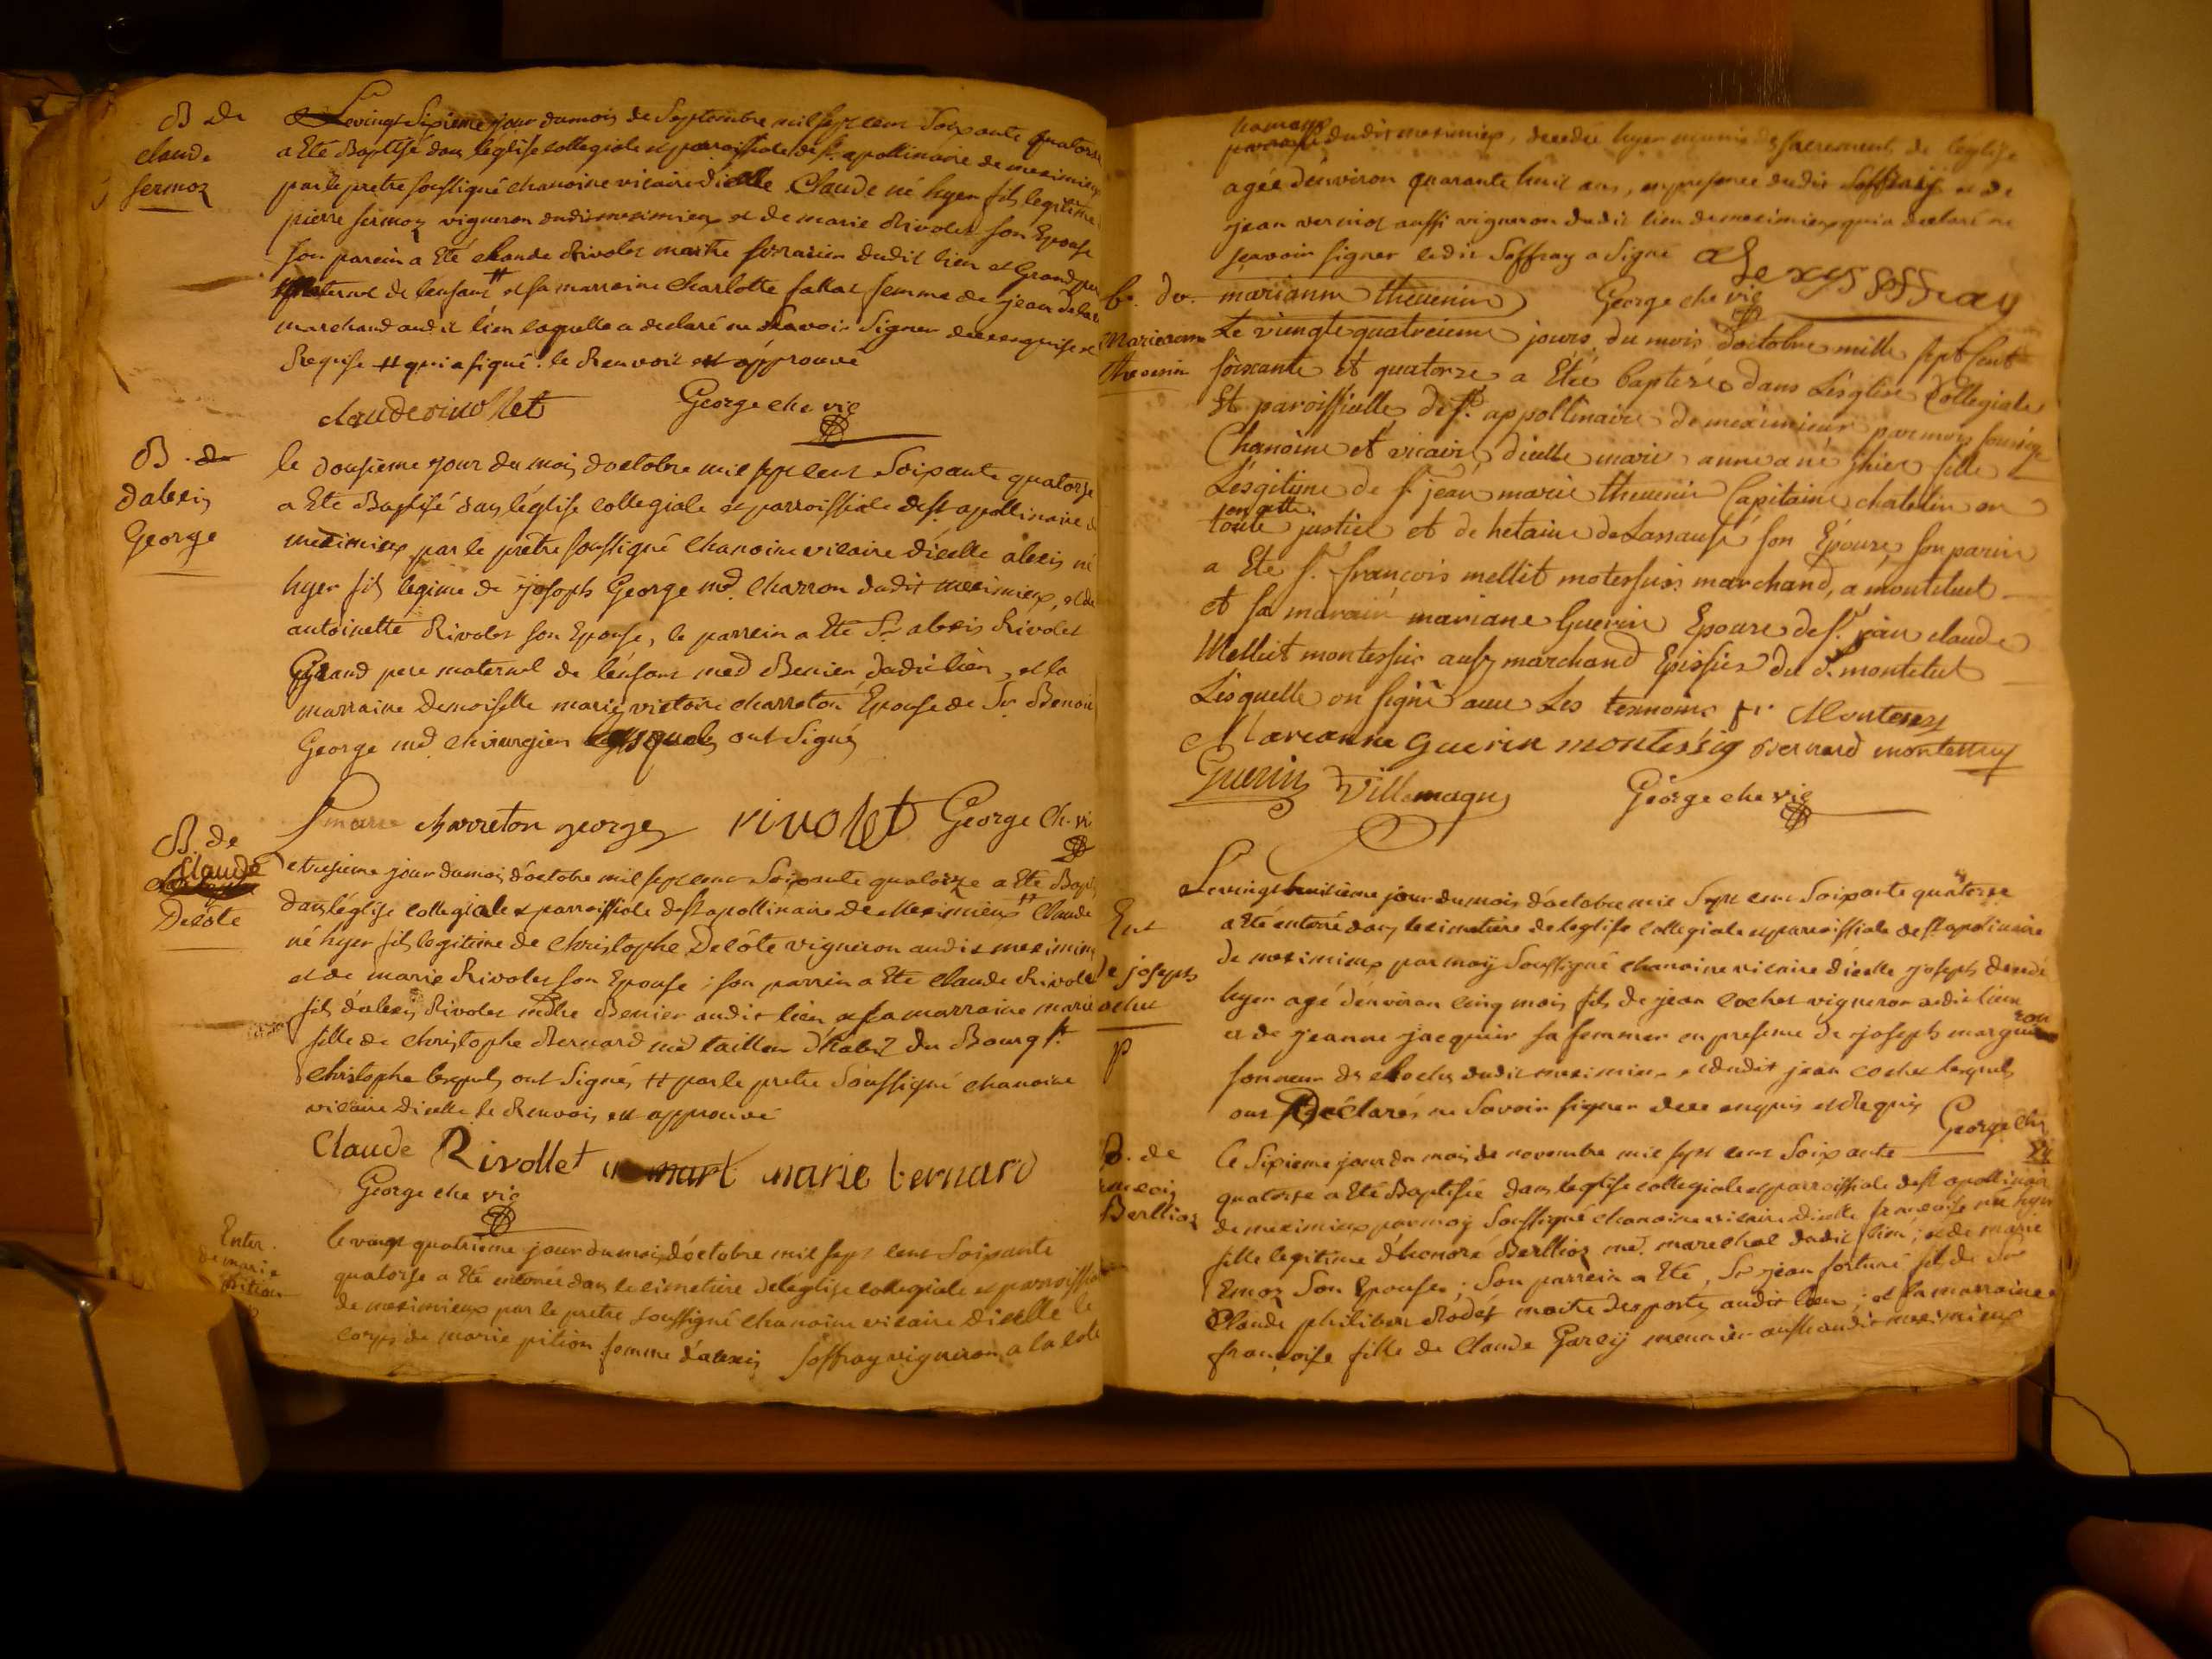 B de
claude
fermoz
Le vingt Sixieme jour du mois de Septembre mil sept cent Soixante quatorze
a Eté Baptisé dans l'église collegiale et parroissiale de st. apollinaire de meximieux
par le pretre soussigné chanoine vicaire d'icelle Claude né hyer fils legitime
pierre fermoz vigneron dudit meximieux et de marie Rivolet son Epouse
son parein a Eté claude Rivolet maitre serrurier dudit lieu et Grand pere
maternel de l'enfant # et sa marreine Charlotte fallat femme de jean
marchand audit lieu laquelle a declaré ne Scavoir Signer de ce enquise et
Requise # qui a signé. le Renvoit est approuvé
claude rivollet George che vic
B. de
d'alexis
George
le Dousieme jour du mois d'octobre mil sept cent Soixante quatorze
a Eté Baptisé dans l'église collegiale et parroissiale de st apollinaire de
meximieux par le prêtre soussigné Chanoine vicaire d'icelle alexis né
hyer fils legime de joseph George md. Charron dudit meximieux, et de
antoinette Rivolet son Epouse, le parrein a Eté Sr alexis Rivolet
Grand pere maternel de l'enfant med Benier dudit lieu, et la
marraine Demoiselle marie victoire charreton Epouse de Sr. Benoit
George md chirurgien lesquels ont Signés
marie charreton george rivollet George Ch. vi
B. de
Claude
Decôte
Le treisieme jour du mois d'octobre mil sept cent Soixante quatorze a Eté Bapt
dans l'église collegiale et parroissiale de st apollinaire de Meximieux # Claude
né hyer fils legitime de Christophe Decôte vigneron audit meximieux
et de marie Rivolet son Epouse ; son parrein a Eté Claude Rivolet
fils d'alexis Rivolet mtre Benier audit lieu et sa marraine marie
fille de christophe Bernard md tailleur d'habit du Bourg st.
christophe lesquels ont Signés # par le pretre Soussigné chanoine
vicaire d'icelle le Renvois est approuvé
Claude Rivollet marie bernard
George che vic
Enter.
de marie
pition
le vingt quatrieme jour du mois d'octobre mil sept cent Soixante
quatorse a Eté enterrée dans le cimetiere de l'église collegiale et parroissiale
de meximieux par le pretre soussigné chanoine vicaire d'icelle le
corps de marie pition femme d'alexis soffray vigneron a la cote
hameau
dudit meximieux, decedée hyer munie des sacrements de l'église
agée d'environ quarante huit ans, en presence dudit Soffray et de
jean verniot aussi vigneron dudit lieu de meximieux qui a declaré ne
scavoir signer ledit Soffray a Signé
George che vic
b. de.
marianne
thevenin
marianne thevenin
Le viengte quatreieme jours du mois d'octobre mille sept Cent
soixante et quatorze a Etéé baptizée dans L'esglise Collegiale
Et paroissielle de st. appollinaire de meximieux par moy sousigné
Chanoine et vicaire d'icelle marie anne a né hier fille
Lesgitime de sr. jean marie thevenin Capitaine chatelin en
toute justice et de helaine de Lassausse son Epouze, son parin
a Ete sr. françois melliet motessuis marchand, a montluel
et sa maraine mariane Guerin Epouze de sr. jean claude
Melliet montessuis ausy marchand Epissier du d. montelut
Lesquelle on signé avec Les temoins
Marianne Guerin montessuy Bernard montessuy
Guerin Villemagne George che vic
Ent
de joseph
cochet
P
Le vingt huitieme jour du mois d'octobre mil Sept cent Soixante quatorze
a Eté enterré dans le cimetiere de l'eglise collegiale et parroissiale de st apolinaire
de meximieux par moy Soussigné chanoine vicaire d'icelle joseph decedé
hyer agé d'environ cinq mois fils de jean cochet vigneron audit lieu
et de jeanne jacquier sa femme en presence de joseph margueron
sonneur de cloches dudit meximieux et dudit jean cochet lesquels
ont Déclarés ne Savoir signer de ce enquis et Requis George che
B. de
francois
Berlioz
Le Sixieme jour du mois de novembre mil sept cent Soixante
quatorze a Eté Baptisée dans l'eglise collegiale et parroissiale de st apollinaire
de meximieux par moy Soussigné chanoine vicaire d'icelle francoise née hyer
fille legitime d'honoré Berllioz md. marechal dudit lieu ; et de marie
Emoz Son Epouse ; Son parrein a Eté, Sr jean fortuné fils de Sr
Claude philibert Rodet maitre des postes audit lieu ; et sa marraine
françoise fille de Claude Garcy meunier aussi audit meximieux